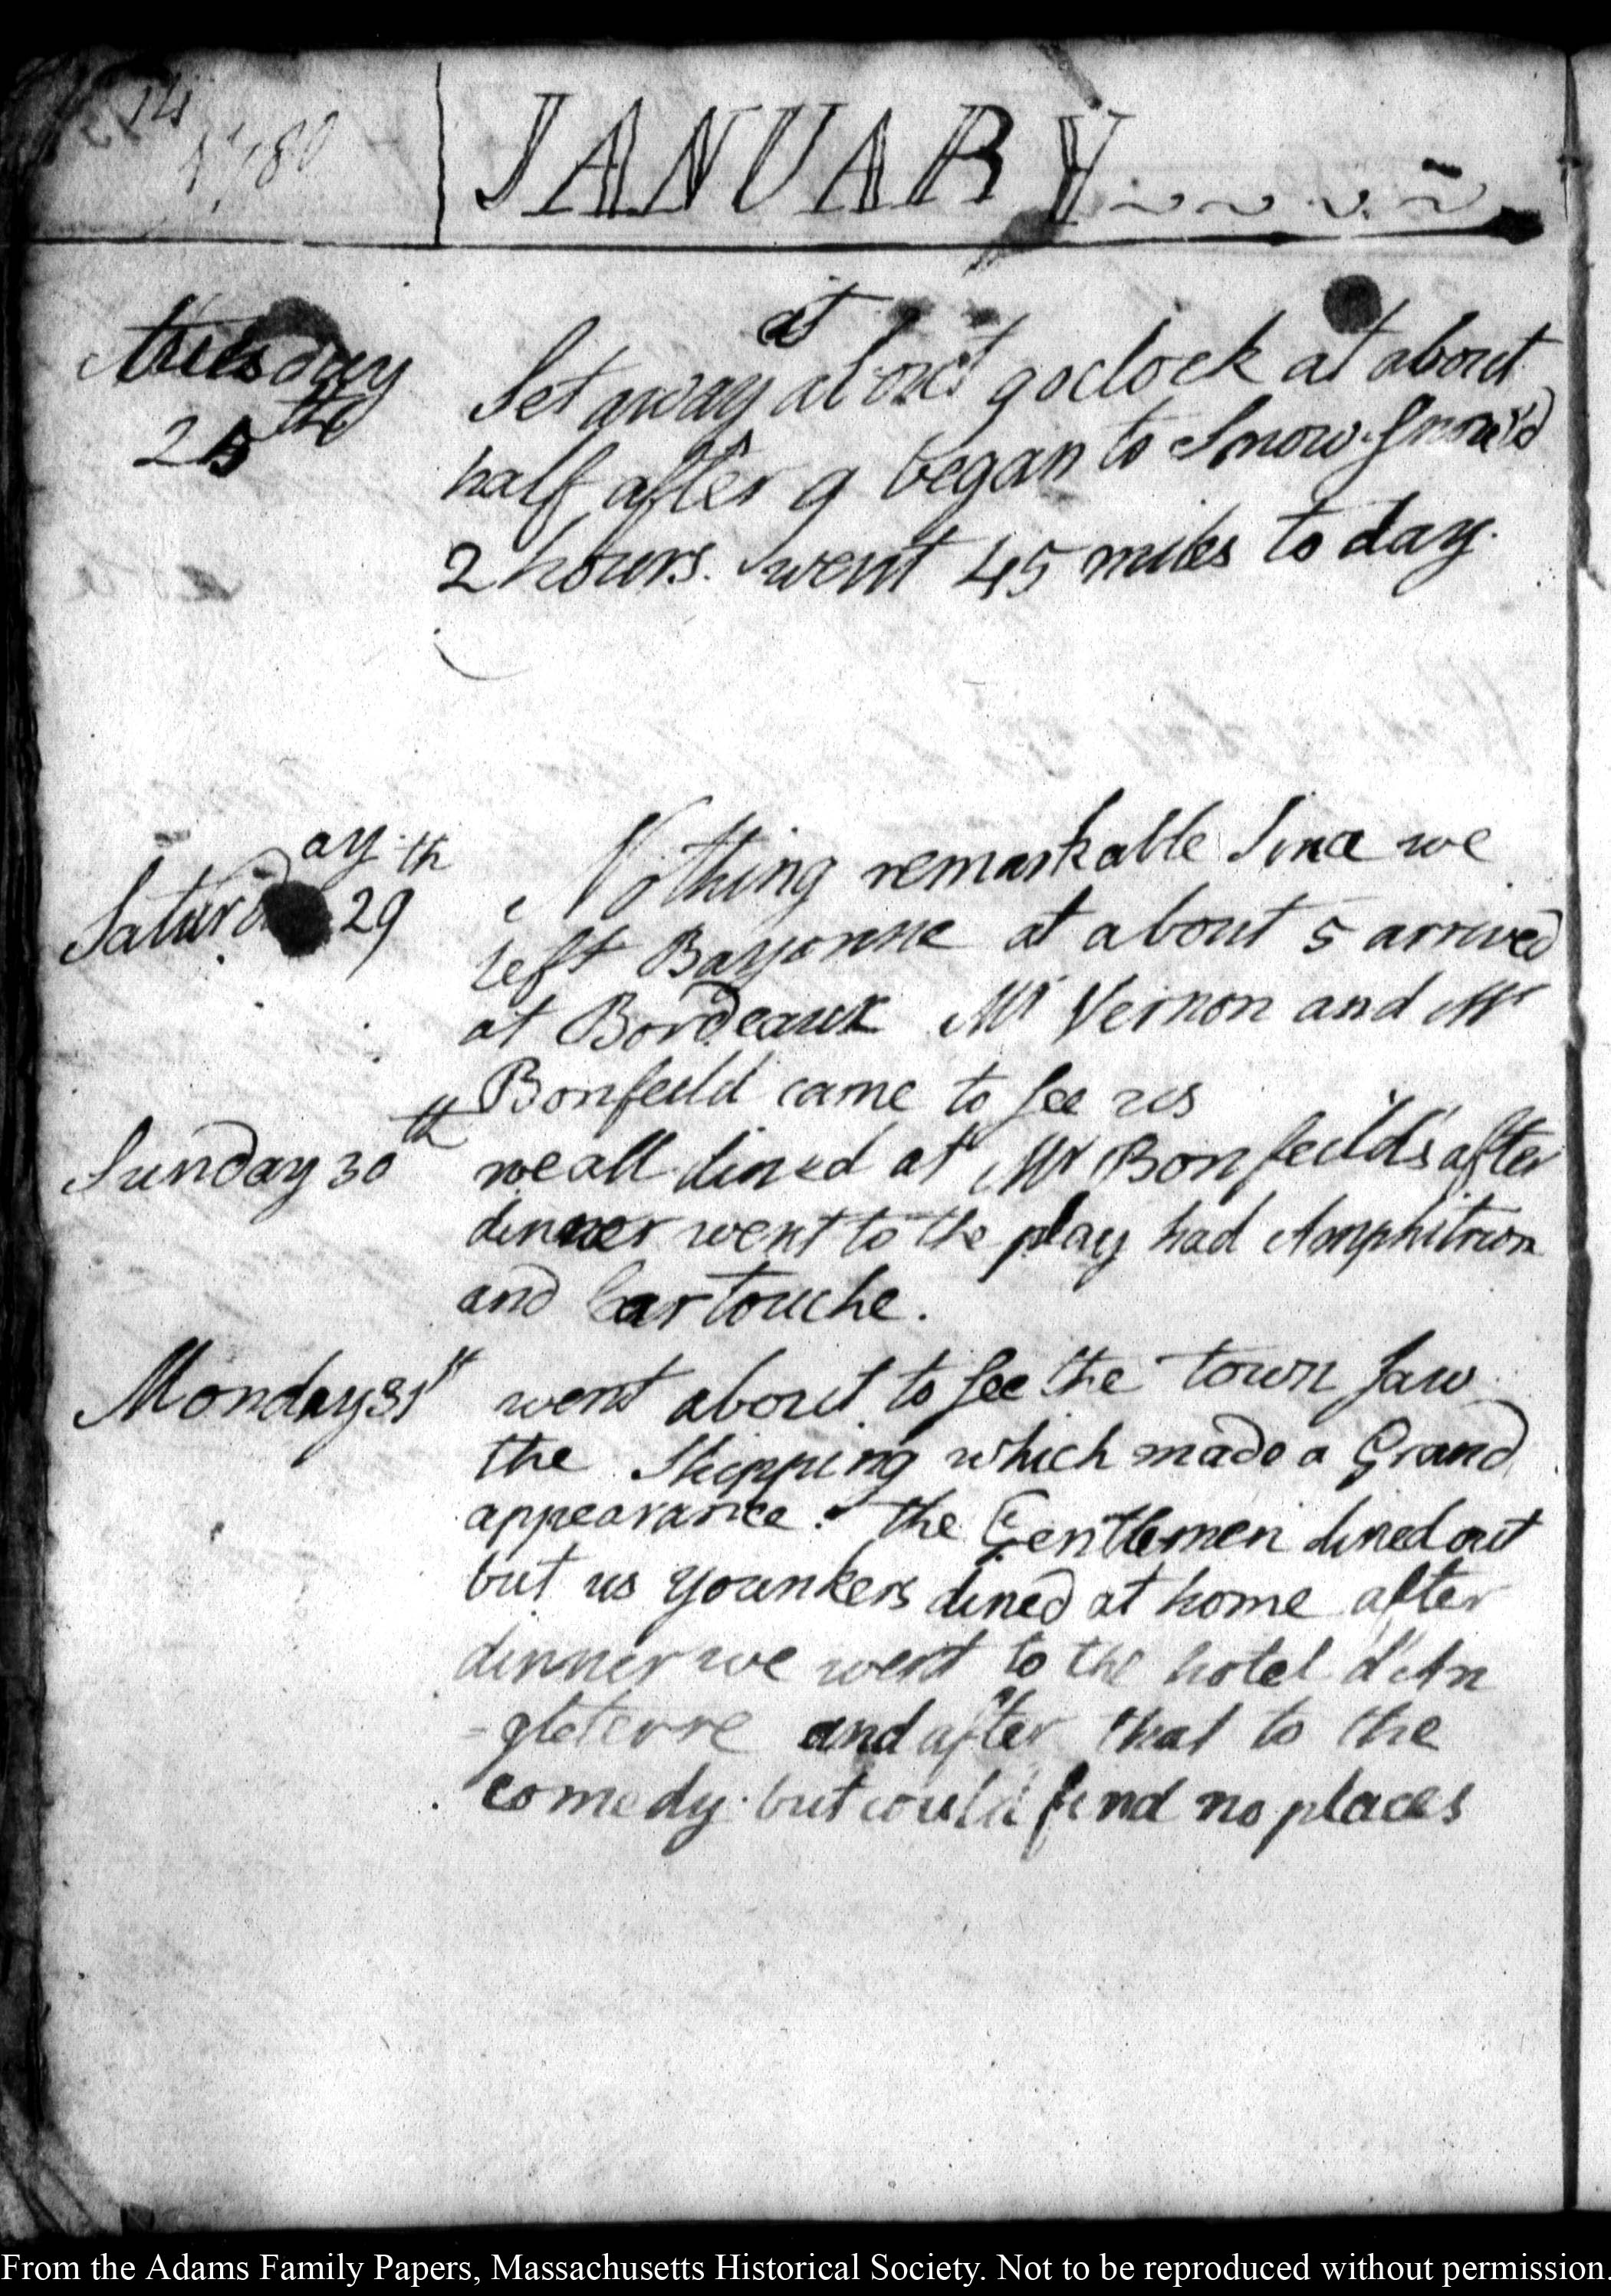 14
1780
JANUARY
tuesday
25th
at
Set away about 9 oclock at about
half after 9 began to Snow. Snow'd
2 hours. went 45 miles to day.
Saturday 29th
Nothing remarkable Since we
left Bayonne at about 5 arrived
at Bordeaux Mr Vernon and Mr
Bonfeild came to See us
Sunday 30th
we all dined at Mr Bonfeild's after
dinner went to the play had Amphitrion
and Cartouche.
Monday 31st
went about to See the town Saw
the Shipping which made a Grand
appearance. the Gentlemen dined out
but us younkers dined at home after
dinner we went to the hotel d'An
=gleterre and after that to the
comedy. but could find no places
From the Adams Family Papers, Massachusetts Historical Society. Not to be reproduced without permission.